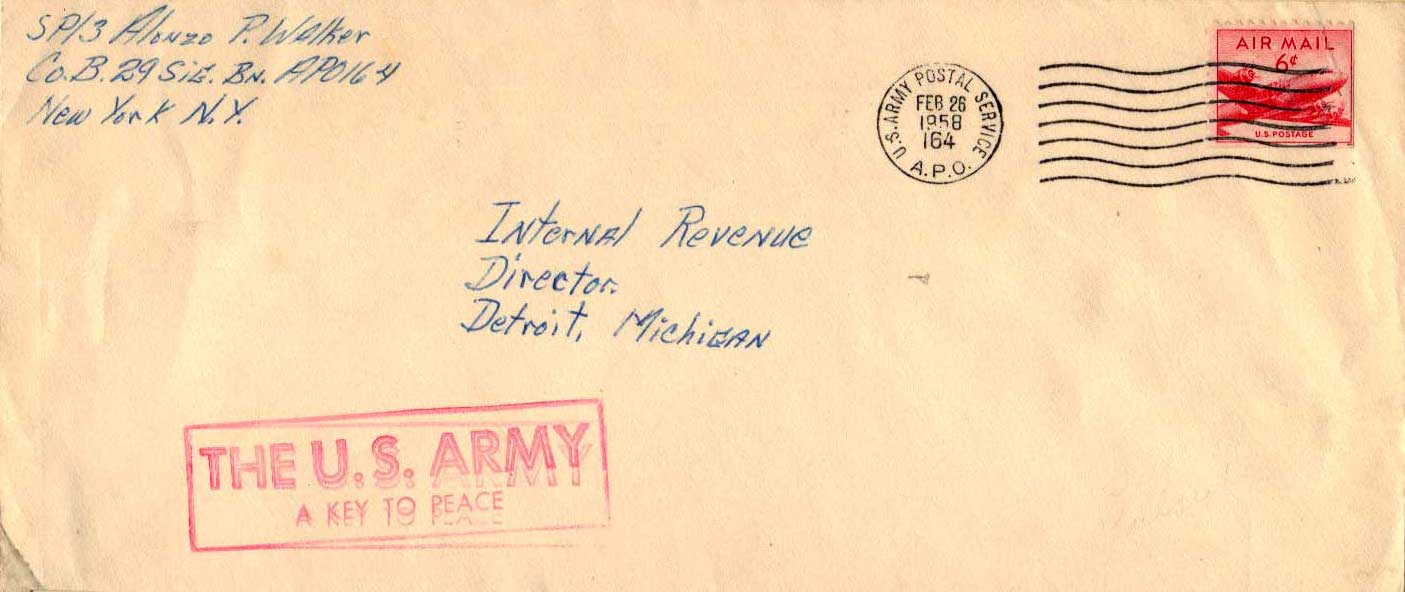 SP/3 Alonzo P. Walker
Co. B. 29 Sig. Bn. APO 164
New York N.Y.
U.S. ARMY POSTAL SERVICE
FEB 26
1958
164
A.P.O.
AIR MAIL
6¢
U.S. POSTAGE
Internal Revenue
Director.
Detroit, Michigan
THE U.S. ARMY
A KEY TO PEACE